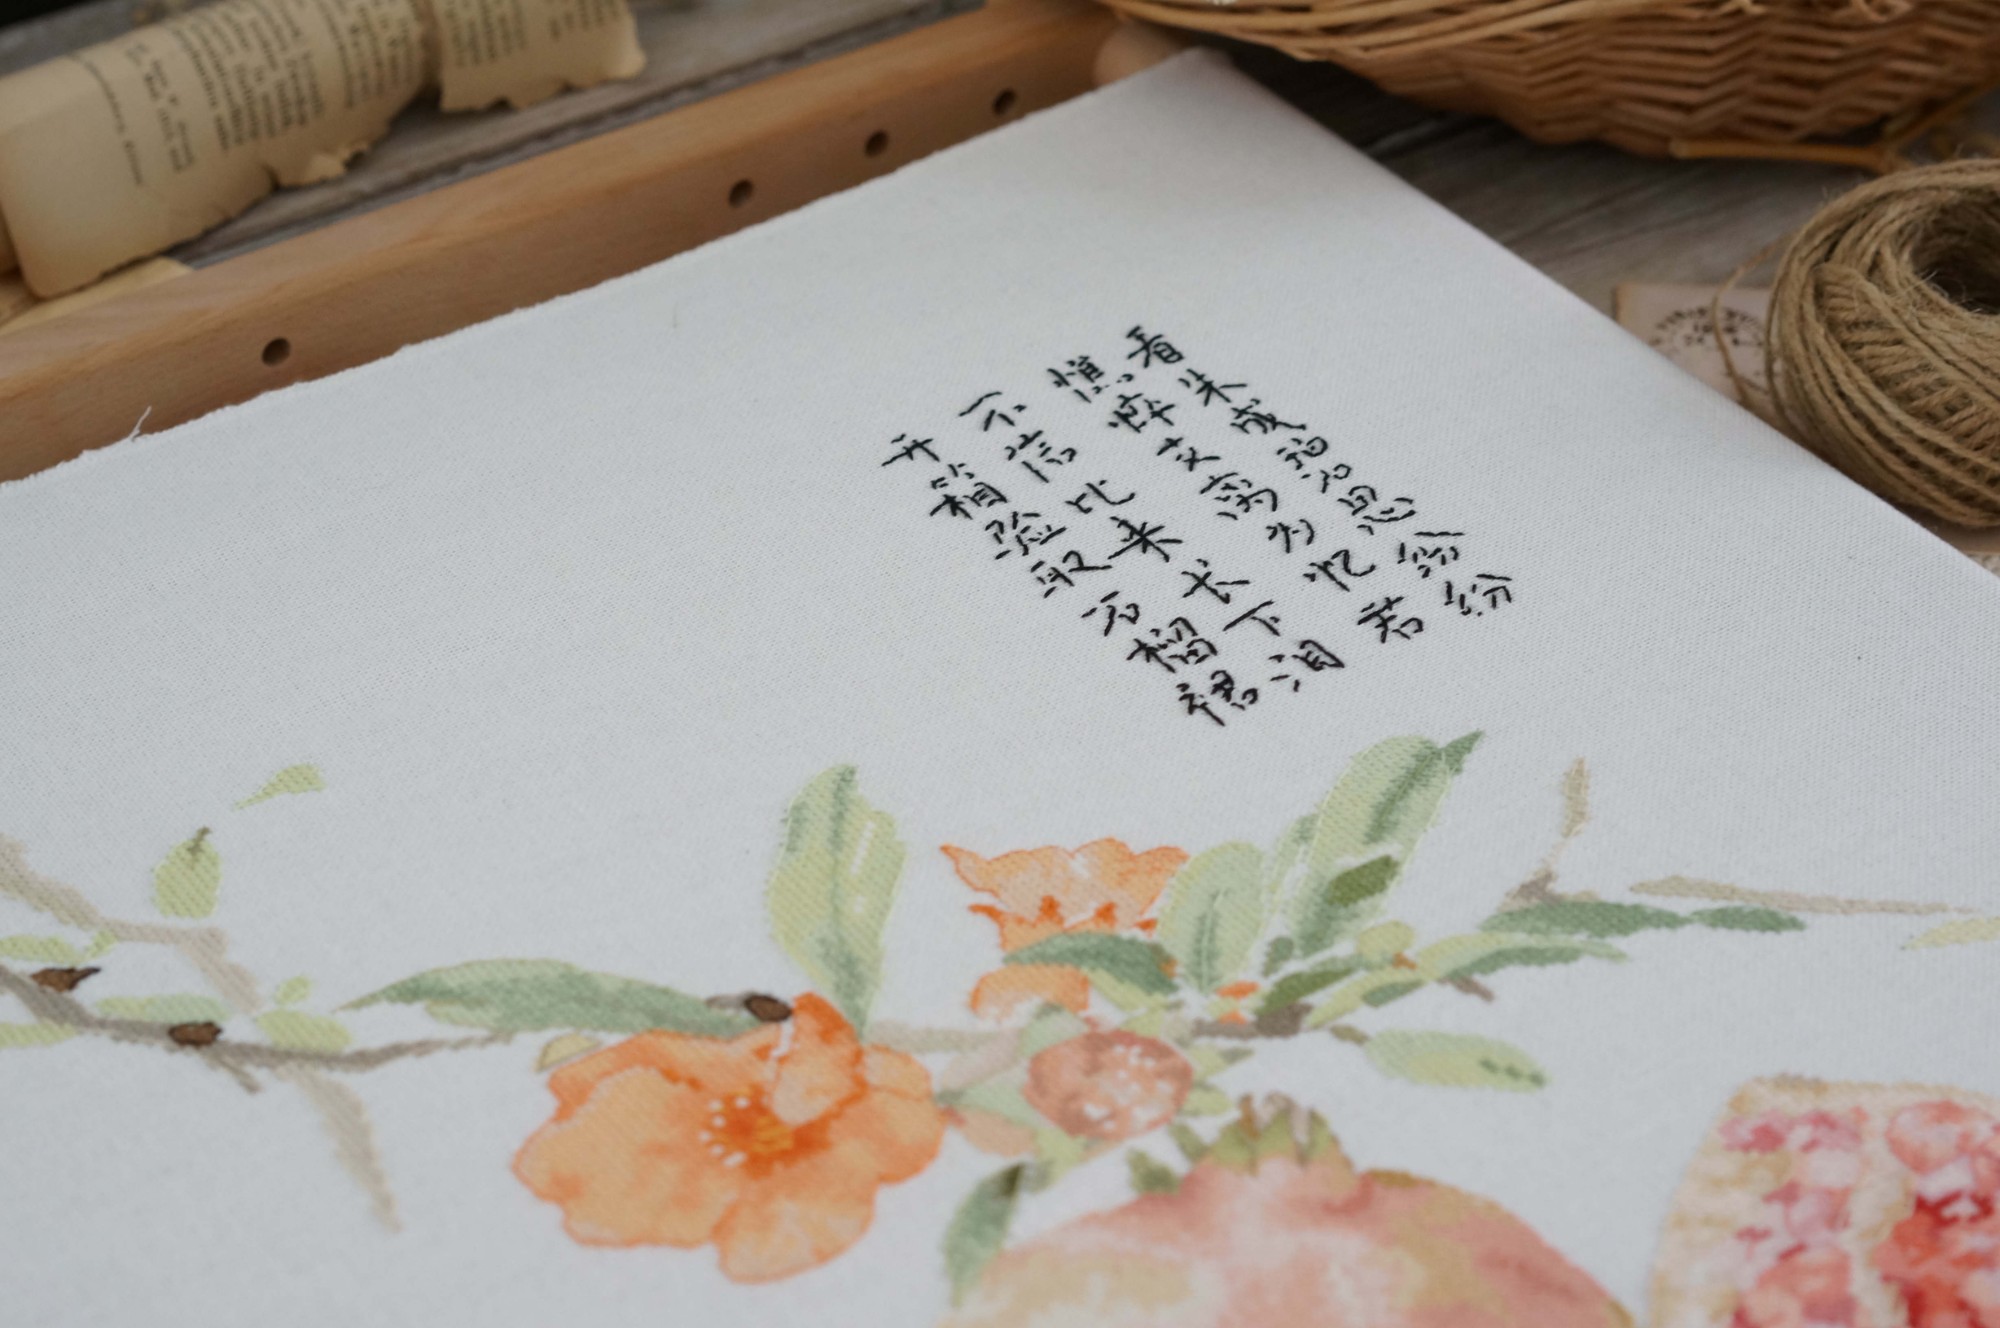 看朱成碧思纷纷
憔悴支离为忆君
不信比来长下泪
开箱验取石榴裙